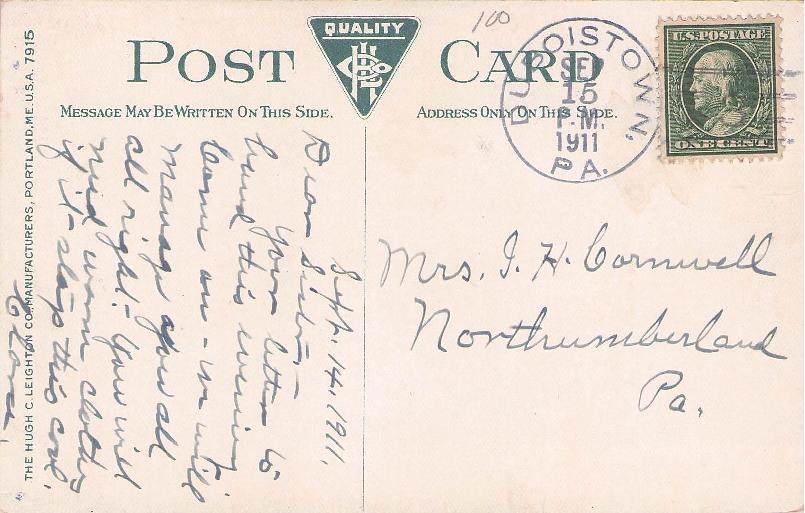 POST CARD
QUALITY
100
MESSAGE MAY BE WRITTEN ON THIS SIDE.
ADDRESS ONLY ON THIS SIDE.
DUBOISTOWN,
SEP
15
P.M.
1911
PA.
U.S. POSTAGE
ONE CENT
THE HUGH C. LEIGHTON CO., MANUFACTURERS, PORTLAND, ME. U.S.A. 7915
Sept. 14, 1911.
Dear Sister,-
Your letter to
hand this evening
Come on - we will
manage you all
all right! - You will
need warm clothes
if it stays this cool.
Mrs. I. H. Cornwell
Northumberland
Pa.